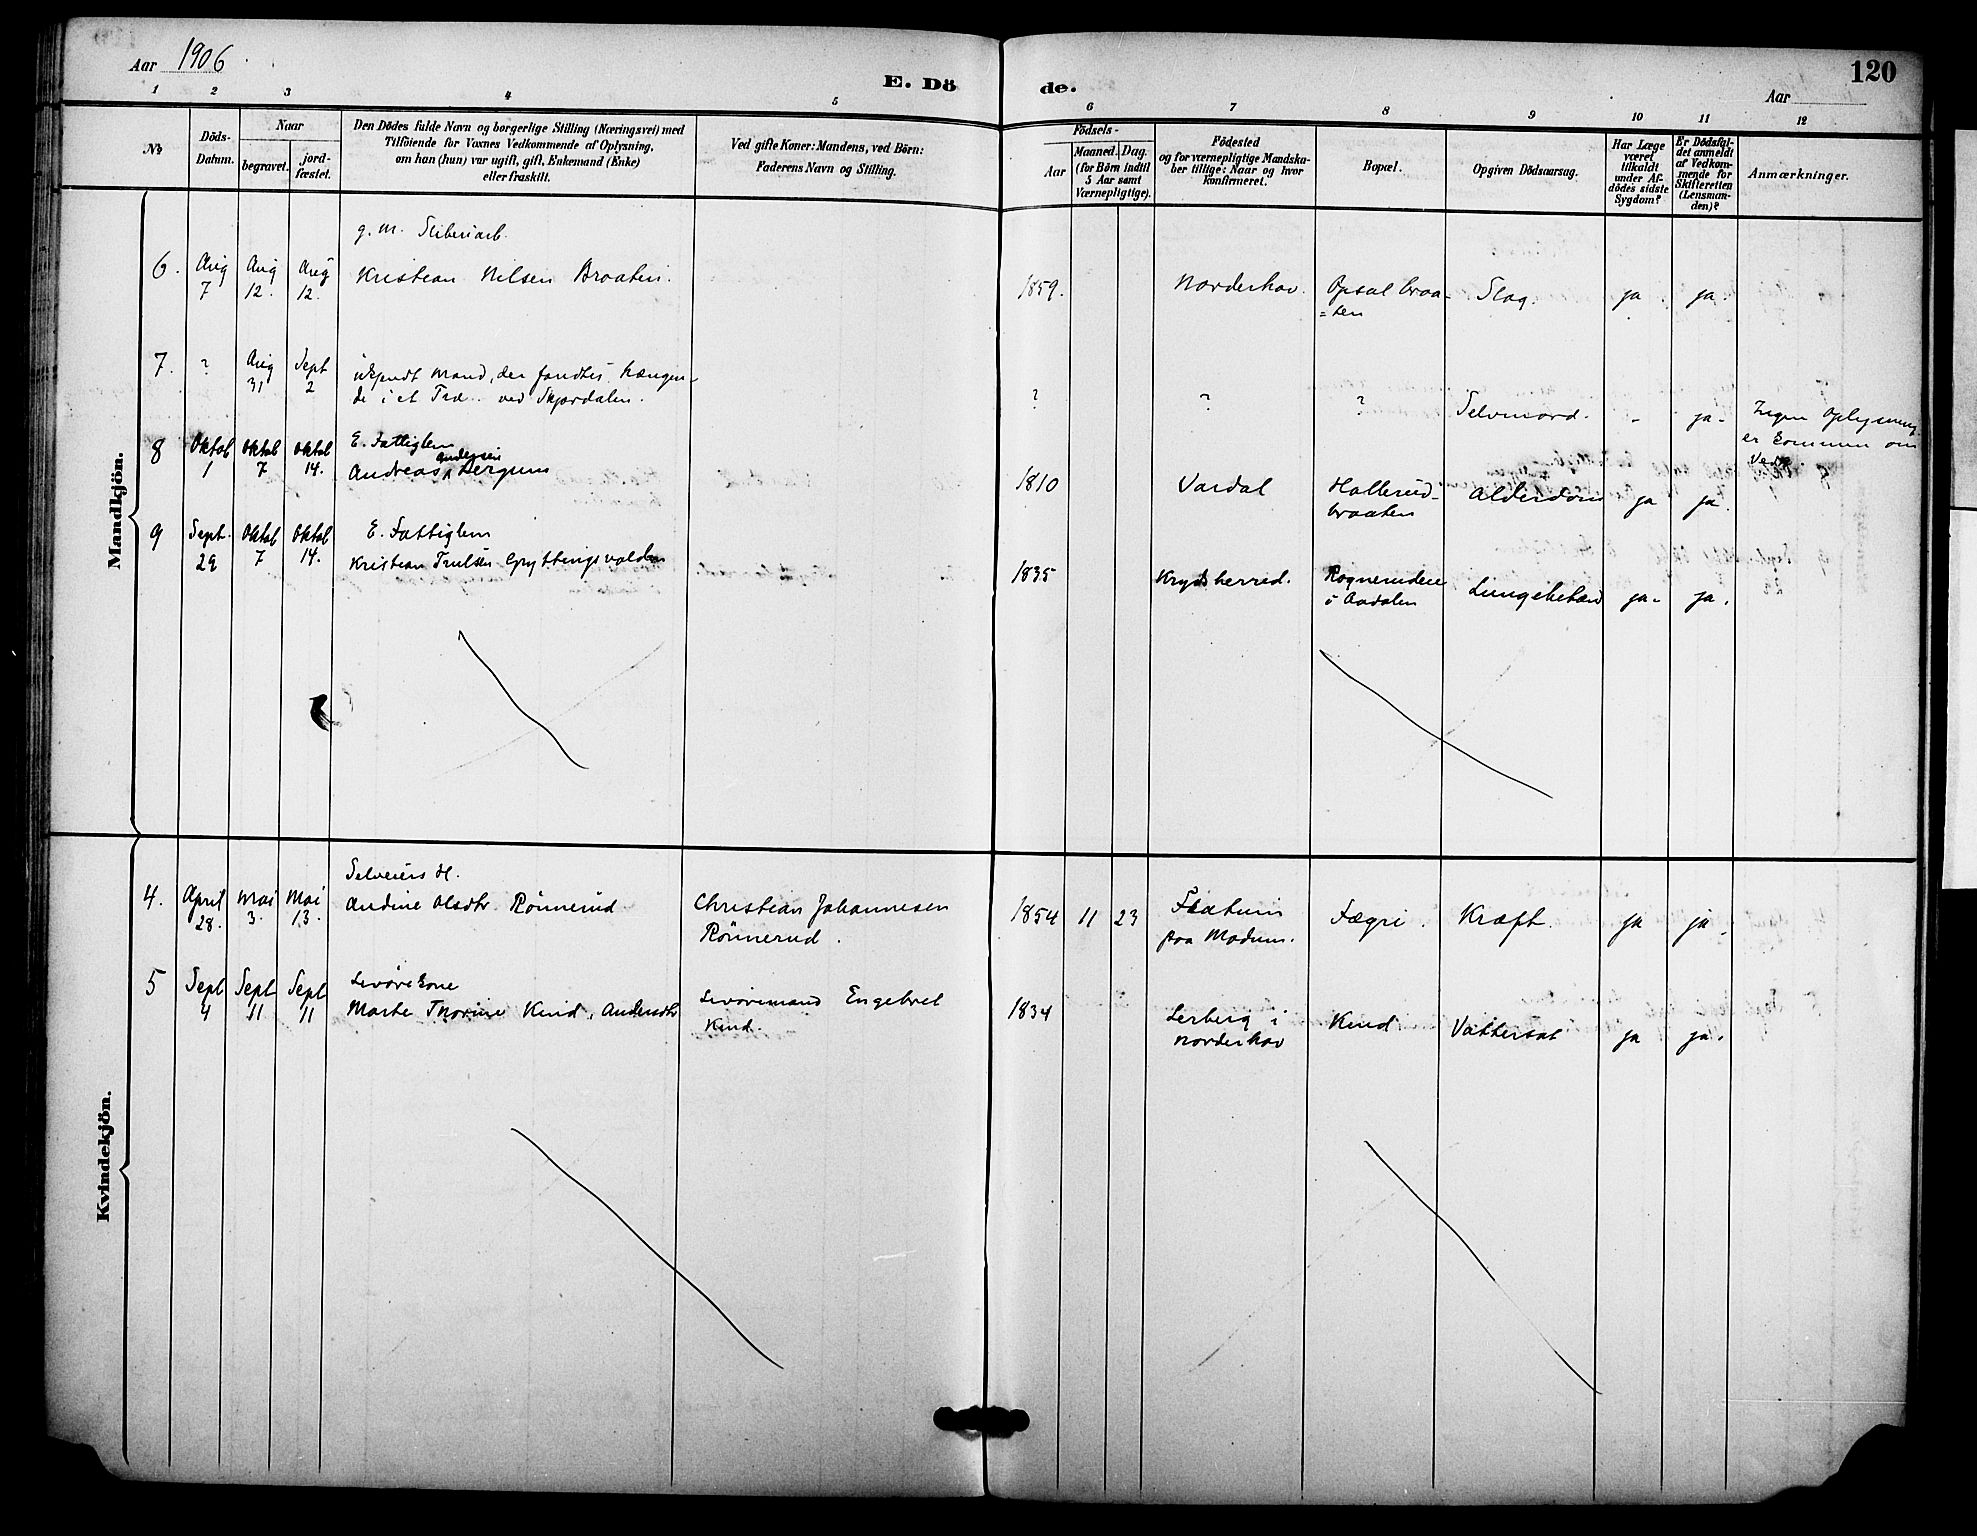 Aar 1906
E. Dö
de.
Aar
120
1 2 3 4 5 6 7 8 9 10 11 12
№
Döds-
Datum.
Naar
begravet.
jord-
fæstet.
Den Dödes fulde Navn og borgerlige Stilling (Næringsvei) med
Tilföiende for Voxnes Vedkommende af Oplysning,
om han (hun) var ugift, gift, Enkemand (Enke)
eller fraskilt.
Ved gifte Koner: Mandens, ved Börn:
Faderens Navn og Stilling.
Födsels-
Aar
Maaned. Dag.
(for Börn indtil
5 Aar samt
Værnepligtige).
Födested
og for værnepligtige Mandska-
ber tillige: Naar og hvor
konfirmeret.
Bopæl.
Opgiven Dödsaarsag.
Har Læge
været
tilkaldt
under Af-
dödes sidste
Sygdom?
Er Dödsfal-
det anmeldt
af Vedkom-
mende for
Skifteretten
(Lensman-
den)?
Anmærkninger.
Mandkjön.
g. m.
6. Aug 7 Aug 12. Aug 12. Kristian Nilsen Braaten. 1859. Norderhov. Opsal braa-
=ten
Slag. ja ja.
7. ? Aug 31 Sept 2 ukjendt Mand, der fandtes hængen-
de i et Træ ved Skjørdalen.
? ? ? Selvmord. - ja. Ingen Oplysning
er kommen om
Vedk.
8 Oktob 1 Oktob 7 Oktob 14. E. Fattiglem
Andersen
Andreas Bergum
1810 Vardal Hallerud-
braaten
Alderdom ja ja.
9 Sept. 29 Oktob 7 Oktob 14. E. Fattiglem
Kristian Trulsen Gryttingsvolden
1835 Krydsherred. Rognerudeie
i Aadalen
Lungebetænd ja. ja.
Kvindekjön.
Selveiers H.
4. April 28. Mai 3. Mai 13. Andine Olsdtr. Rönnerud Christian Johannesen
Rönnerud.
1854 11 23 Flatum
paa Modum.
Fægri. Kræft. ja ja.
5 Sept 4 Sept 11 Sept 11 Livörekone
Marte Thorine Kind, Andersdtr
Livöremand Engebret
Kind.
1834 Lerberg i
Norderhov
Kind Vattersot ja ja.